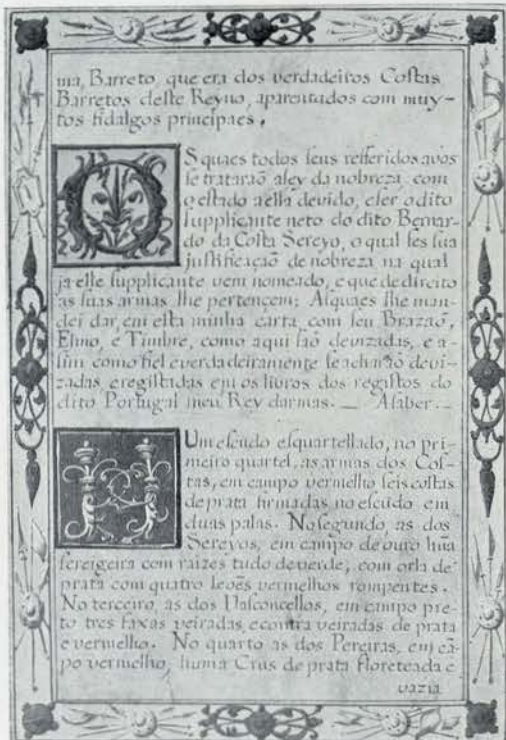 ma, Barreto, que era dos verdadeiros Costas
Barretos deste Reyno, aparentados com muy-
tos fidalgos principaes,
OS quaes todos seus refferidos avos
se trataraõ aley da nobreza, com
o estado a ella devido, e ser o dito
supplicante neto do dito Bernar-
do da Costa Sereyo, o qual fes sua
justificaçaõ de nobreza na qual
ja elle supplicante vem nomeado, e que de direito
as suas armas lhe pertençem; As quaes lhe man-
dei dar, em esta minha carta, com seu Brazaõ,
Elmo, e Timbre, como aqui saõ devizadas, e a-
sim como fiel e verdadeiramente se acharaõ devi-
zadas, e registadas em os livros dos registos do
dito Portugal meu Rey darmas. _ Asaber. _
HUm escudo esquartellado, no pri-
meiro quartel, as armas dos Cos-
tas, em campo vermelho seis costas
de prata firmadas no escudo em
duas palas. No segundo, as dos
Sereyos, em campo de ouro hũa
sereigeira com raizes tudo de verde, com orla de
prata com quatro leoẽs vermelhos rompentes.
No terceiro, as dos Vasconcellos, em campo pre-
to tres faxas veiradas, e contra veiradas de prata
e vermelho. No quarto as dos Pereiras, em cã-
po vermelho, huma Crus de prata floreteada e
vazia